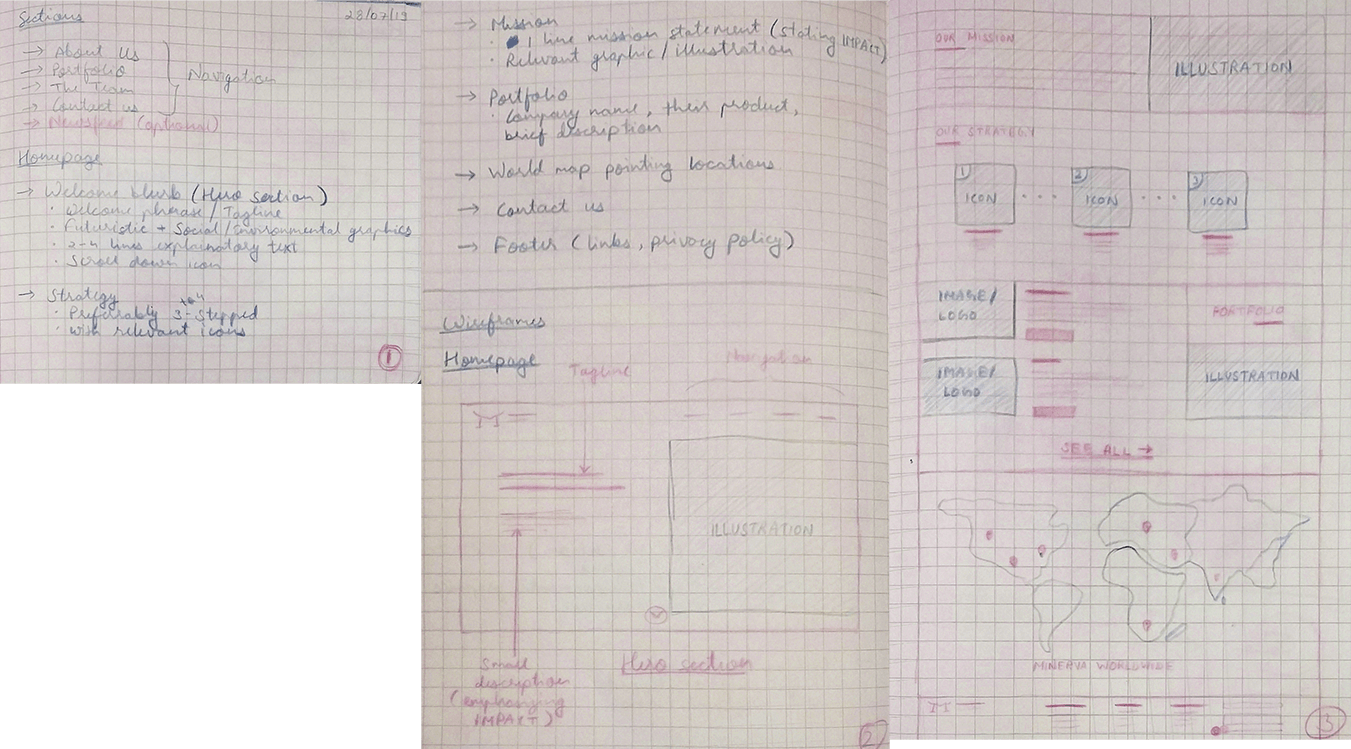 Sections
28/07/19
→ About Us
→ Portfolio
→ The Team
→ Contact us
Navigation
→ Newsfeed (optional)
Homepage
→ Welcome blurb (Hero section)
· Welcome phrase / Tagline
· Futuristic + Social / Environmental graphics
· 2-4 lines explainatory text
· Scroll down icon
→ Strategy
· Preferably 3-stepped
· with relevant icons
1
→ Mission
· 1 line mission statement (stating IMPACT)
· Relevant graphic / illustration
→ Portfolio
· Company name, their product,
brief description
→ World map pointing locations
→ Contact us
→ Footer (links, privacy policy)
Wireframes
Homepage
Tagline
Navigation
M
ILLUSTRATION
Small
description
(emphasizing
IMPACT)
Hero section
2
OUR MISSION
ILLUSTRATION
OUR STRATEGY
1 2 3
ICON ... ICON ... ICON
IMAGE/
LOGO
PORTFOLIO
IMAGE/
LOGO
ILLUSTRATION
SEE ALL →
MINERVA WORLDWIDE
M
3